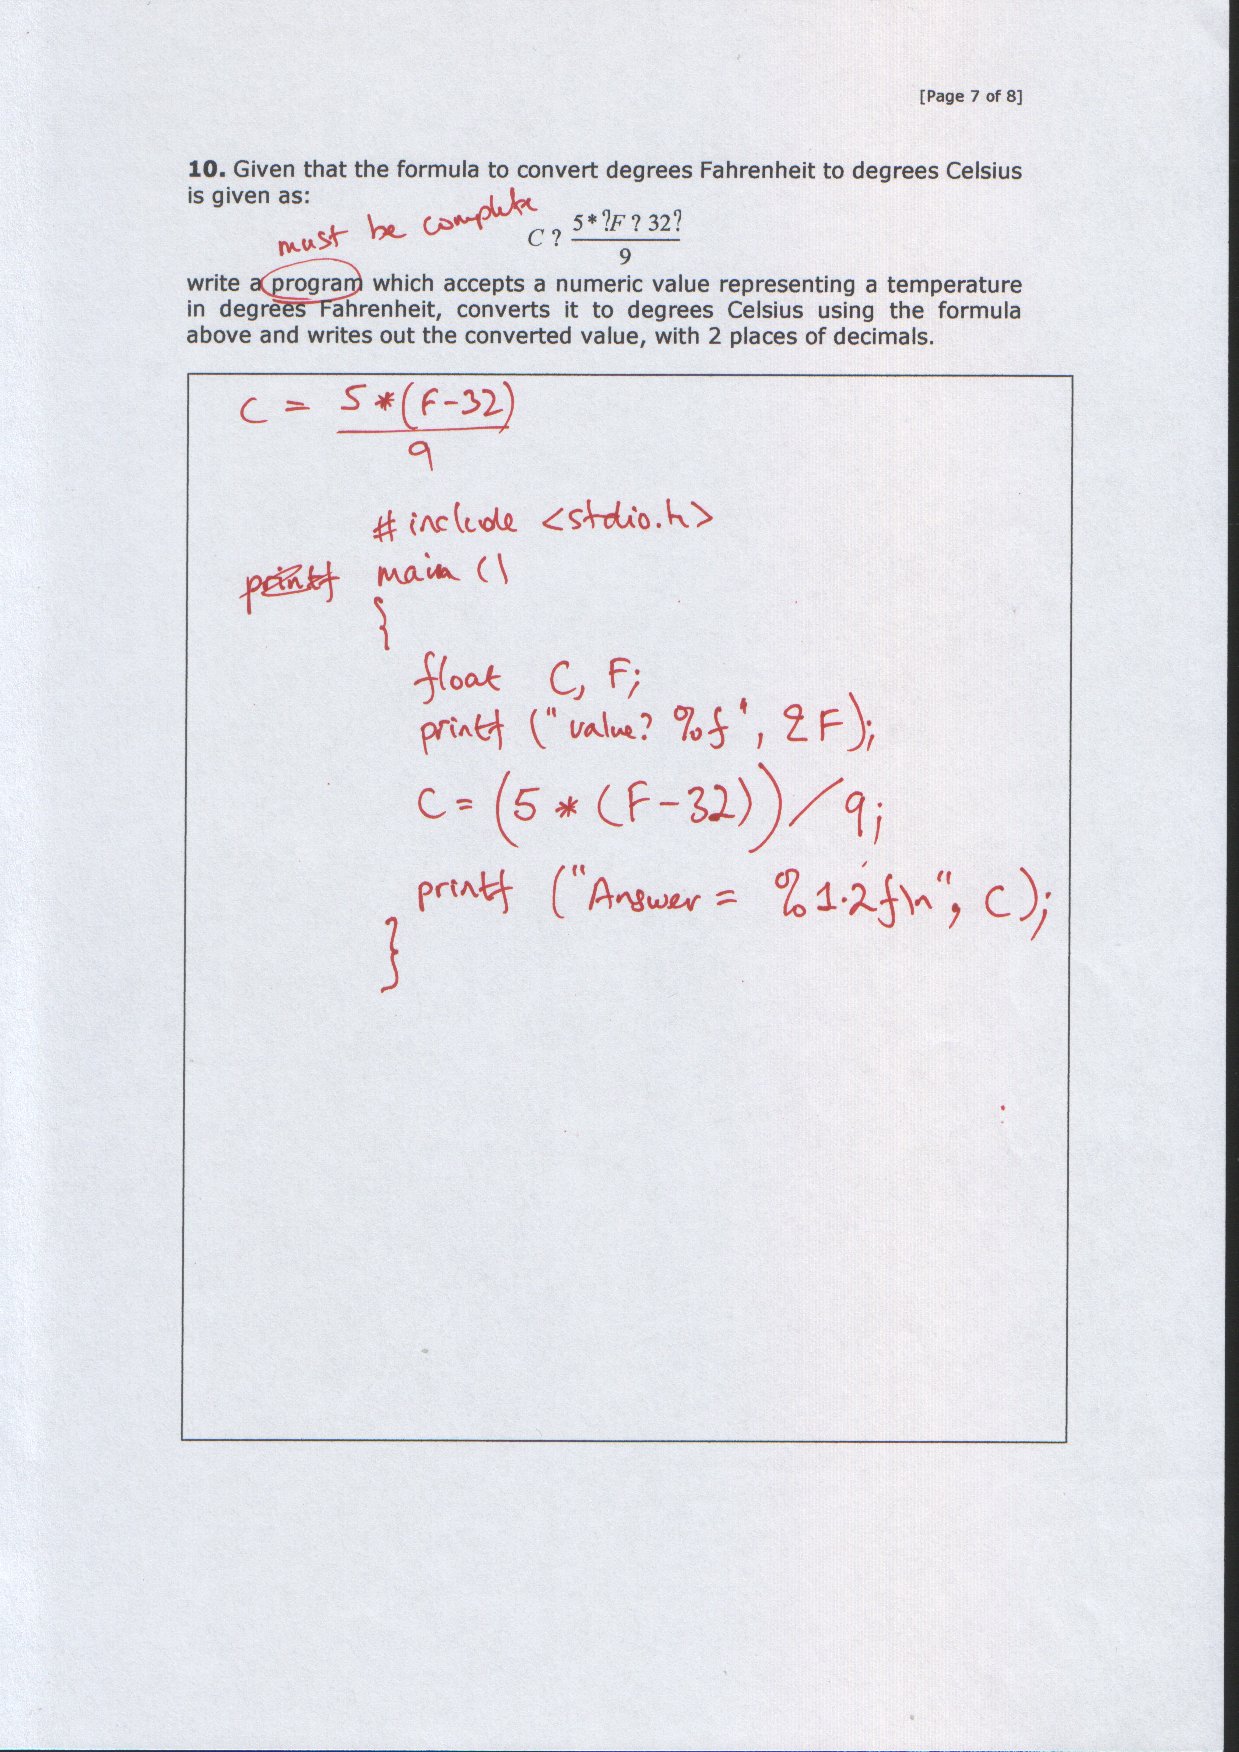 [Page 7 of 8]
10. Given that the formula to convert degrees Fahrenheit to degrees Celsius
is given as:
must be complete
C ? 5 * ?F ? 32?
9
write a program which accepts a numeric value representing a temperature
in degrees Fahrenheit, converts it to degrees Celsius using the formula
above and writes out the converted value, with 2 places of decimals.
C = 5 * (F - 32)
9
# include <stdio.h>
printf main ()
{
float C, F;
printf ("value? %f", &F);
C = (5 * (F - 32)) / 9;
printf ("Answer = %1.2f\n", C);
}